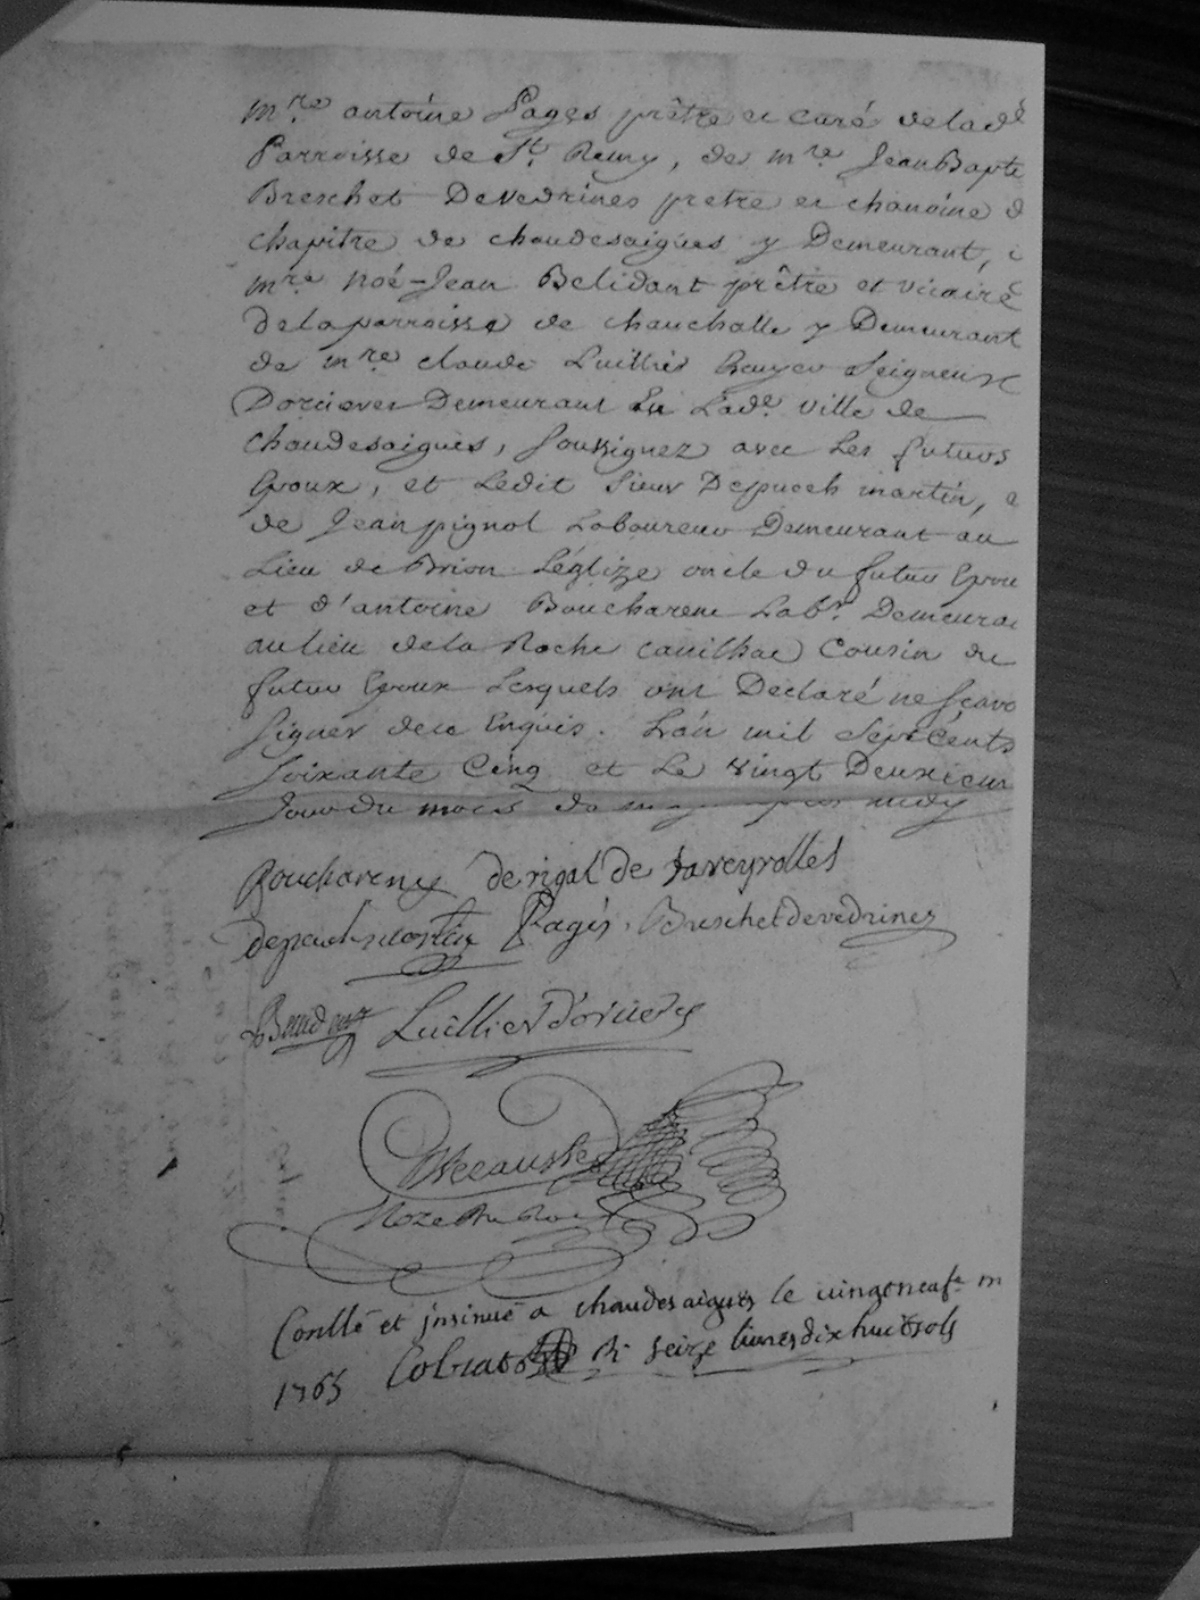 Mre antoine Pages prêtre et curé delade
Parroisse de St. Remy, de mre Jean Bapte
Breschet Devedrines pretre et chanoine d
chapitre de chaudesaigues y Demeurant,
mre Noé-Jean Belidant prêtre et vicaire
Delaparroisse de chauchalle y Demeurant
de mre claude Luillier Seigneur
Dorcieres Demeurant En Lade. ville de
chaudesaigues, soussignez avec Les futurs
Epoux, et Ledit sieur Depuech martin, e
de Jean pignol Laboureur Demeurant au
Lieu de Brion Léglize oncle du futur Epou
et d'antoine Boucharenc Labr. Demeura
aulieu dela Roche canilhac Cousin du
futur Epoux Lesquels ont Declaré ne scavo
signer dece Enquis. L'an mil septcents
soixante Cinq et Le vingt Deuxieme
Jour du mois de may apres midy
Boucharenc de rigal de Faveyrolles
depuech martin Pagés Breschet devedrines
Luillier d'orcieres
Conllé et jnsinué a chaudesaigues le vingtneufe m
1765 R seize livres dix huit sols